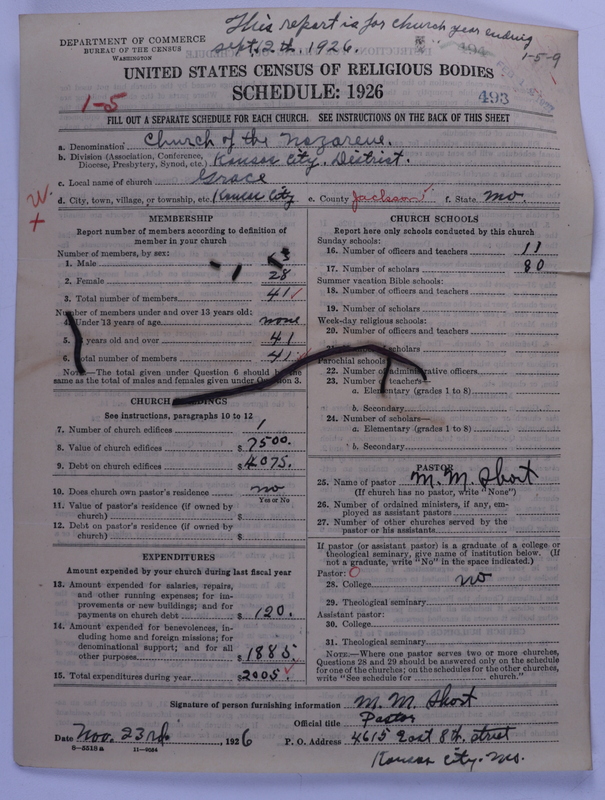 This report is for church year ending
Sept. 12th, 1926.
DEPARTMENT OF COMMERCE
BUREAU OF THE CENSUS
WASHINGTON
494
1-5-9
UNITED STATES CENSUS OF RELIGIOUS BODIES
SCHEDULE: 1926
1-5
493
FILL OUT A SEPARATE SCHEDULE FOR EACH CHURCH. SEE INSTRUCTIONS ON THE BACK OF THIS SHEET
a. Denomination Church of the Nazarene.
b. Division (Association, Conference, Diocese, Presbytery, Synod, etc.) Kansas City. District.
c. Local name of church Grace
d. City, town, village, or township, etc. Kansas City e. County Jackson f. State Mo.
W.
+
MEMBERSHIP
Report number of members according to definition of
member in your church
Number of members, by sex:
1. Male 13
2. Female 28
3. Total number of members 41
Number of members under and over 13 years old:
4. Under 13 years of age none
5. 13 years old and over 41
6. Total number of members 41
NOTE.—The total given under Question 6 should be the
same as the total of males and females given under Question 3.
CHURCH BUILDINGS
See instructions, paragraphs 10 to 12
7. Number of church edifices 1
8. Value of church edifices $7500.
9. Debt on church edifices $4075.
10. Does church own pastor's residence no
Yes or No
11. Value of pastor's residence (if owned by
church) $
12. Debt on pastor's residence (if owned by
church) $
EXPENDITURES
Amount expended by your church during last fiscal year
13. Amount expended for salaries, repairs,
and other running expenses; for im-
provements or new buildings; and for
payments on church debt $120.
14. Amount expended for benevolences, in-
cluding home and foreign missions; for
denominational support; and for all
other purposes $1885
15. Total expenditures during year $2005
CHURCH SCHOOLS
Report here only schools conducted by this church
Sunday schools:
16. Number of officers and teachers 11
17. Number of scholars 80
Summer vacation Bible schools:
18. Number of officers and teachers
19. Number of scholars
Week-day religious schools:
20. Number of officers and teachers
21. Number of scholars
Parochial schools:
22. Number of administrative officers
23. Number of teachers—
a. Elementary (grades 1 to 8)
b. Secondary
24. Number of scholars—
a. Elementary (grades 1 to 8)
b. Secondary
PASTOR
25. Name of pastor M. M. Short
(If church has no pastor, write "None")
26. Number of ordained ministers, if any, em-
ployed as assistant pastors
27. Number of other churches served by the
pastor or his assistants
If pastor (or assistant pastor) is a graduate of a college or
theological seminary, give name of institution below. (If
not a graduate, write "No" in the space indicated.)
Pastor: O
28. College no
29. Theological seminary
Assistant pastor:
30. College
31. Theological seminary
NOTE.—Where one pastor serves two or more churches,
Questions 28 and 29 should be answered only on the schedule
for one of the churches; on the schedules for the other churches,
write "See schedule for church."
Signature of person furnishing information M. M. Short
Official title Pastor
Date Nov. 23rd, 1926 P. O. Address 4615 East 8th. Street
8-5518a 11-9584
Kansas City. Mo.